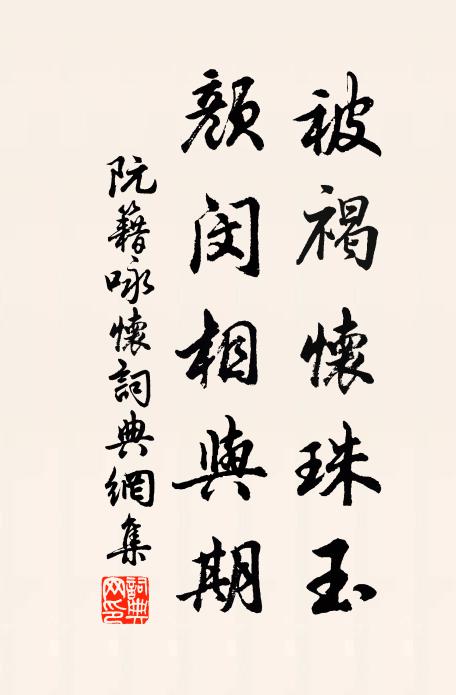 被褐懷珠玉
顏閔相與期
阮籍咏懷詞典網集
詞典網印